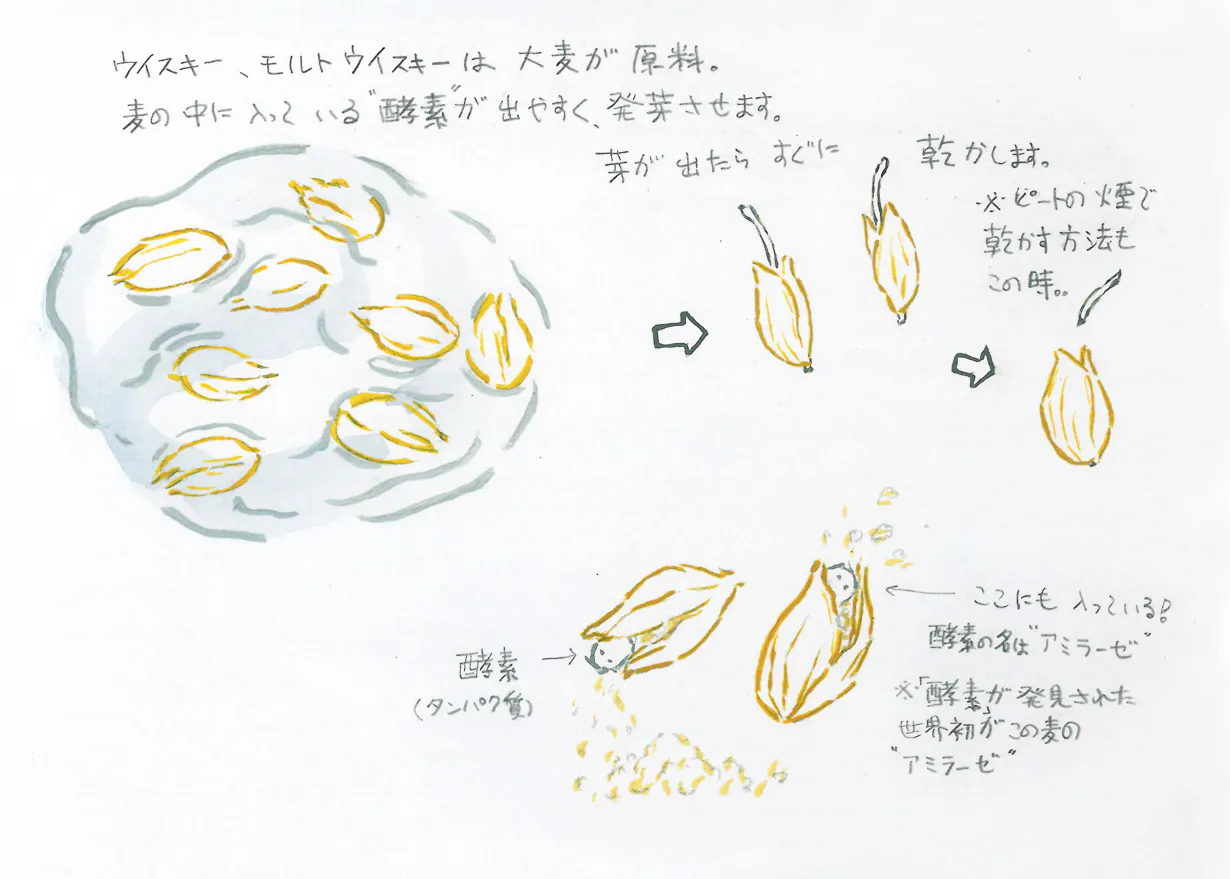 ウイスキー、モルトウイスキーは 大麦が 原料。
麦の中に入って いる"酵素"が 出やすく、発芽させます。
芽が 出たら すぐに
乾かします。
※ピートの煙で
乾かす方法も
この時。。
ここにも 入っている!
酵素の名は"アミラーゼ"
酵素
(タンパク質)
※「酵素」が 発見された
世界初が この麦の
"アミラーゼ"